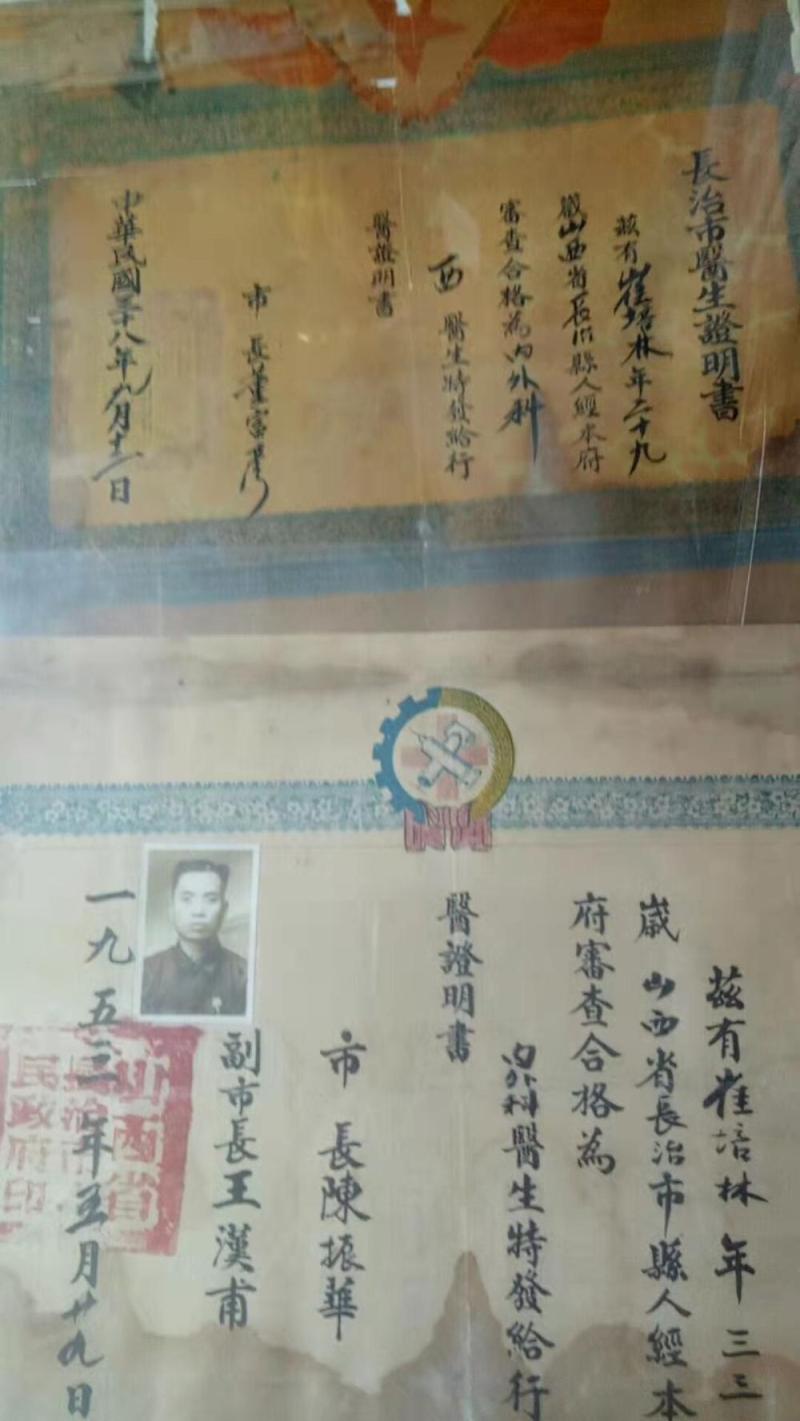 長治市醫生證明書
茲有崔培林年二十九
歲山西省長治縣人經本府
審查合格為内外科
西醫生特發給行
醫證明書
市長董
中華民國三十八年九月十二日
茲有崔培林年三三
歲山西省長治市縣人經本
府審查合格為
内外科醫生特發給行
醫證明書
市長陳振華
副市長王漢甫
一九五三年五月廿九日
山西省
長治市人
民政府印